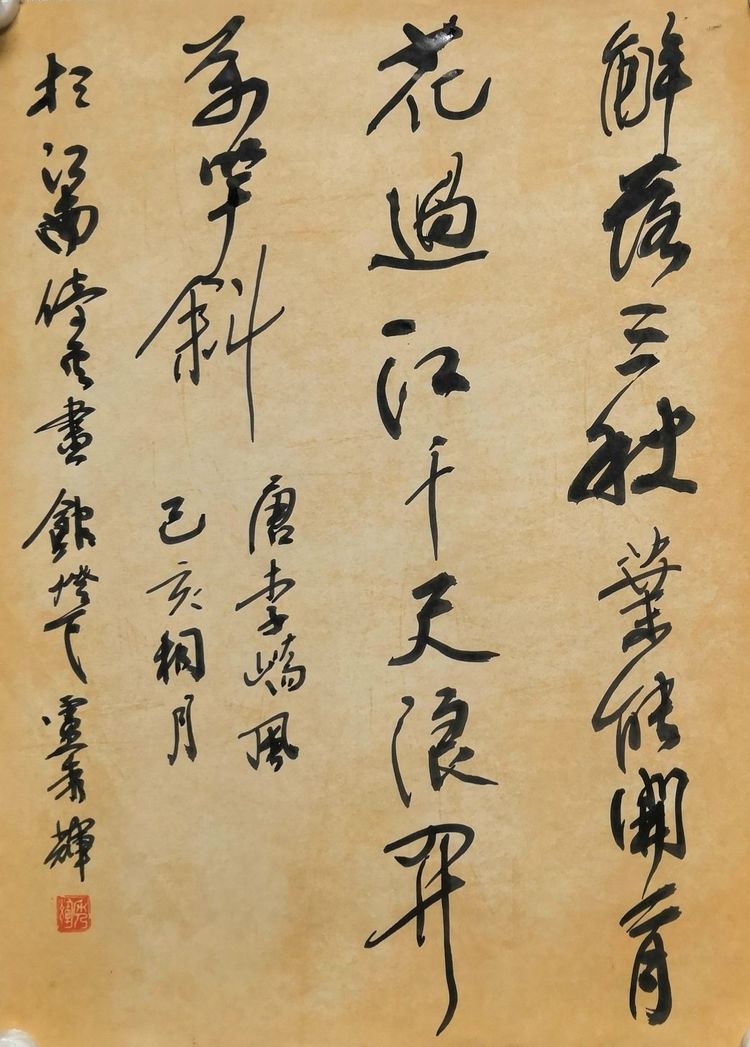 解落三秋葉能開二月
花過江千尺浪入竹
萬竿斜
唐李嶠風
己亥桐月
於江南停云書館燈下盧秀輝